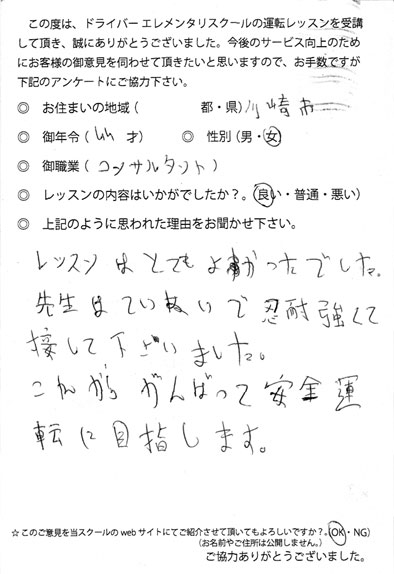 この度は、ドライバー エレメンタリスクールの運転レッスンを受講
して頂き、誠にありがとうございました。今後のサービス向上のため
にお客様の御意見を伺わせて頂きたいと思いますので、お手数ですが
下記のアンケートにご協力下さい。
◎ お住まいの地域 ( 都・県) 川崎市
◎ 御年令 ( 才) ◎ 性別 (男・女)
◎ 御職業 ( コンサルタント )
◎ レッスンの内容はいかがでしたか?。(良い・普通・悪い)
◎ 上記のように思われた理由をお聞かせ下さい。
レッスンはとてもよかったでした。
先生はていねいで忍耐強くて
接して下ございました。
これから がんばって 安全運
転に目指します。
☆このご意見を当スクールの web サイトにてご紹介させて頂いてもよろしいですか?。(OK・NG)
(お名前やご住所は公開しません。)
ご協力ありがとうございました。